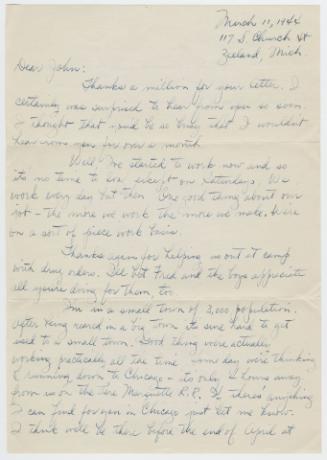 March 11, 1944
117 S. Church St
Zeeland, Mich
Dear John:
Thanks a million for your letter. I
certainly was surprised to hear from you so soon.
I thought that you'd be so busy that I wouldn't
hear from you for over a month.
Well I've started to work now and so
it's no time to except on Saturdays. We
work every day but then. One good thing about our
job - the more we work the more we make. We're
on a sort of piece work basis.
Thanks again for helping us out at camp
with drug orders. I'll bet Fred and the boys appreciate
all you're doing for them, too.
I'm in a small town of 3,000 population.
After being reared in a big town its sure hard to get
used to a small town. Good thing we're actually
working practically all the time. Some day we're thinking
of running down to Chicago - its only 4 hours away
from us on the Pere Marquette R.R. If there's anything
I can find for you in Chicago just let me know.
I think we'll be there before the end of April at